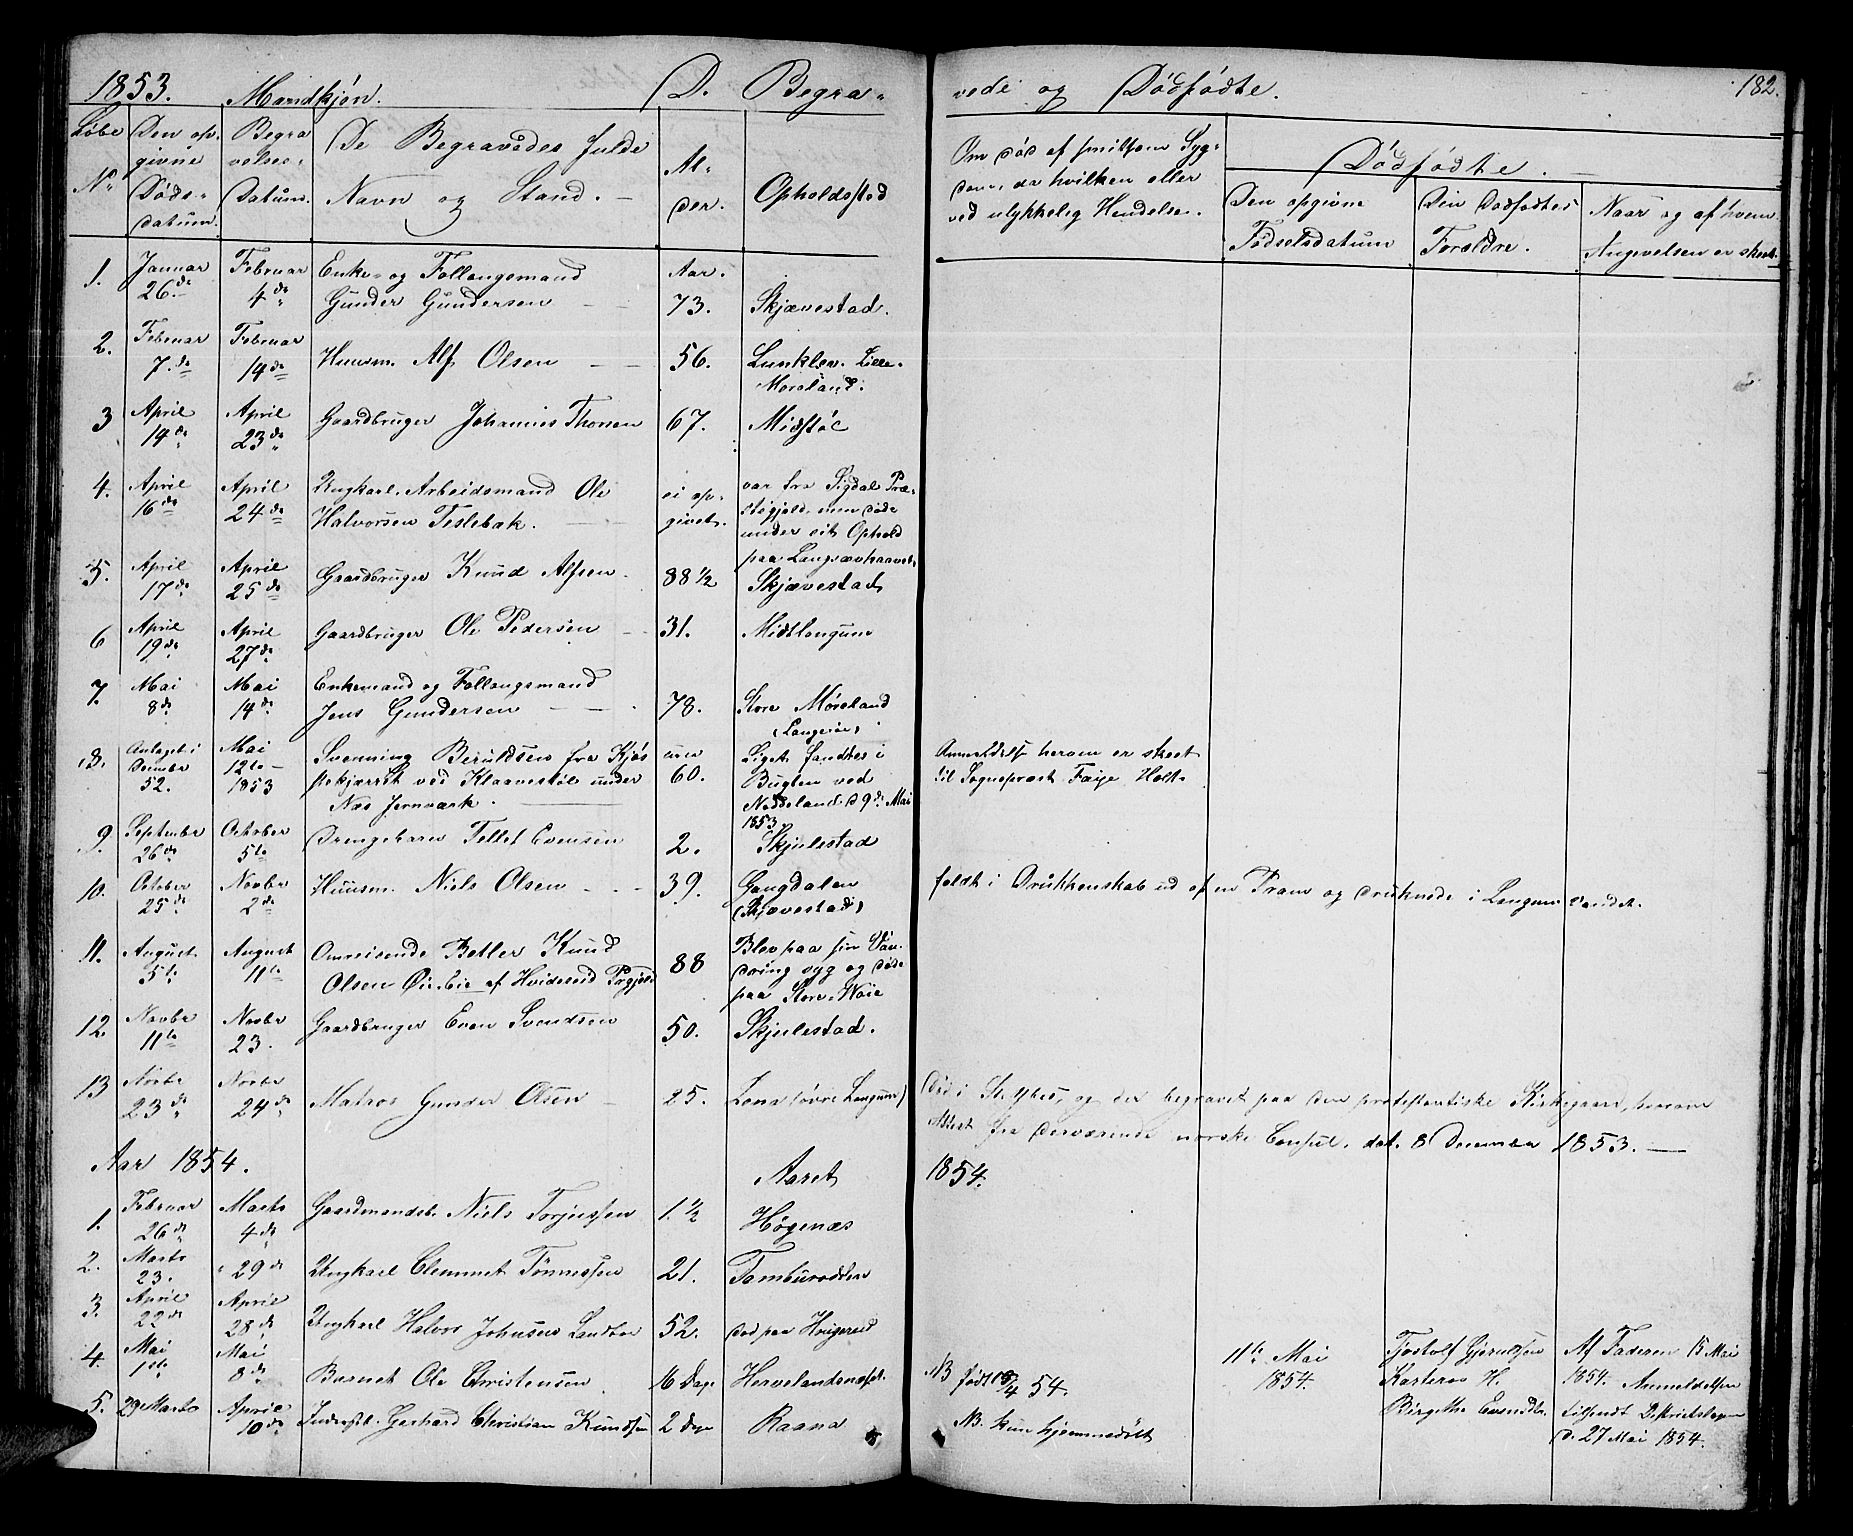 1853. Mandkjøn. D. Begra-
vede og Dødfødte. 182.
Løbe No
Den opgivne Døds-datum.
Begravelses-Datum.
De Begravedes fulde
Navn og Stand. —
Alder.
Opholdssted
Om død af smitsom Syg-
dom, da hvilken eller
ved ulykkelig Hendelse.
Dødfødte. —
Den opgivne
Fødselsdatum
Den Dødfødtes
Forældre.
Naar og af hvem
Angivelsen er skeet.
1. Januar 26de Februar 4de Enke- og Follaugsmand Aar.
Gunder Gundersen — 73. Skjævestad.
2. Februar 7de Februar 14de Huusm. Alf Olsen — — 56. Lunklev. Lille-
Moreland.
3 April 14de April 23de Gaardbruger Johannes Thorsen 67. Midstøl
4. April 16de April 24de Ungkarl. Arbeidsmand Ole ei op-
Halvorsen Teslebak. — givet. var fra Sigdal Præ-
stegjeld, men døde
under sit Ophold
paa
5. April 17de April 25de Gaardbruger Knud Alfsen. 88 1/2 Skjævestad
6 April 19de April 27de Gaardbruger Ole Pedersen — 31. Midtlangum
7. Mai 8de Mai 14de Enkemand og Follaugsmand
Jens Gundersen — — 78. Store Møreland
(Langøia)
8. Antaget i December 52. Mai 12te — 1853 Svenning Beruldsen fra Kjøs circa 60.
ved Klaavestøl under
Næs Jernværk. —
Liget fandtes i
Bugten ved
Nedseland d 9de Mai
1853.
Anmeldelse herom er skeet
til Sognepræst Faye Holt.
9. September 26de October 5te Drengebarn Tellef Evensen 2. Skjulestad
10. October 25de Novbr 2de Huusm. Niels Olsen — — 39. Gangdalen
(Skjævestad)
faldt i Drukkenskab ud af en Pram og druknede i Langum Vandet.
11. August 5te August 11te Omreisende Betler Knud
Olsen af Hvideseid Pgjeld 88 Blev paa sin Van-
dring syg og døde
paa Store-Waie
12. Novbr 11te Novbr 23. Gaardbruger Even Svendsen 50. Skjulestad.
13 Novbr 23de Novbr 24de Matros Gunder Olsen — 25. Lona (øvre Langum)
Død i og der begravet paa den protestantiske Kirkegaard, herom
Attest fra derværende norske Consul, dat. 8 December 1853. —
Aar 1854. Aaret 1854.
1. Februar 26de Marts 4de Gaardmandsb. Niels Torjussen 1. 1/2 Høgenæs
2. Marts 23. " 29de Ungkarl Clemmet Tønnessen 21. Tamburodden
3. April 22de April 28de Ungkarl Halvor Johnsen 52. død paa
4. Mai 1ste Mai 8de Barnet Ole Christensen 16 Dage
NB født 15/4 54.
11te Mai
1854.
Tjostolf Gjeruldsen
Kasterøs H.
Birgithe Evensdtr.
Af Faderen 15 Mai
1854. Anmeldelsen
tilsendt Districtslægen
d. 27 Mai 1854.
5. 29 Marts April 10de Gerhard Christian Knudsen 2 dage Raana
NB. kun hjemmedøbt